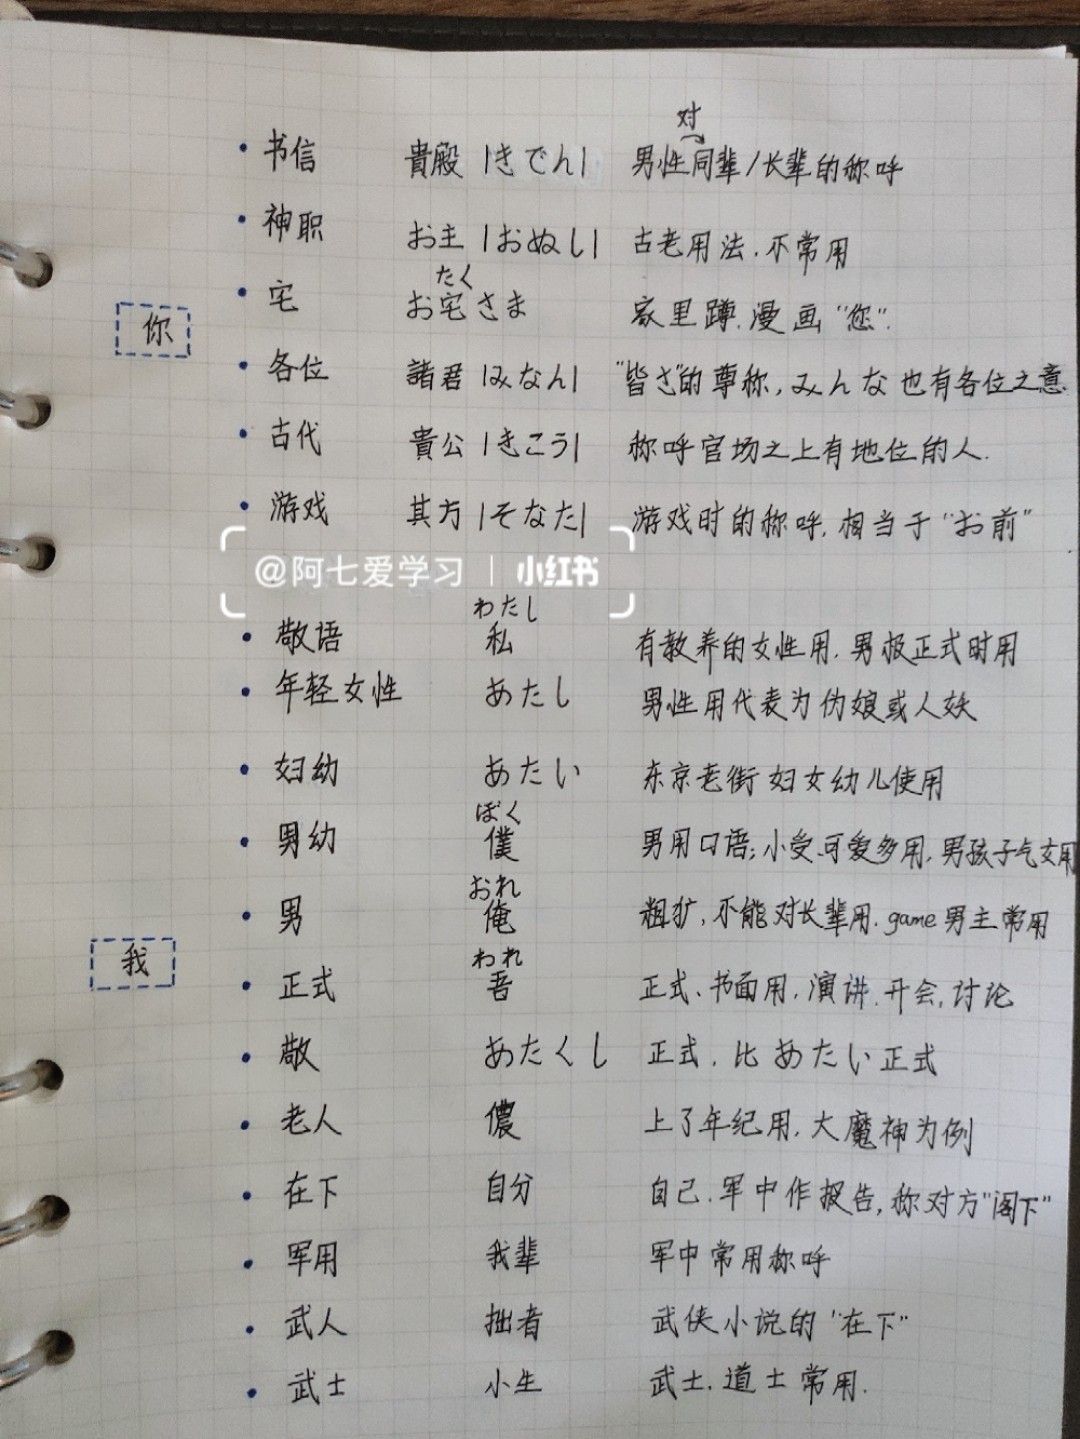 对
书信 貴殿 |きでん| 男性同辈/长辈的称呼
神职 お主 |おぬし| 古老用法.不常用
たく
宅 お宅さま 家里蹲.漫画"您".
你
各位 諸君 |みなん| "皆さ"的尊称,みんな也有各位之意
古代 貴公 |きこう| 称呼官场之上有地位的人.
游戏 其方 |そなた| 游戏时的称呼,相当于"お前"
@阿七爱学习 | 小红书
わたし
敬语 私 有教养的女性用.男极正式时用
年轻女性 あたし 男性用代表为伪娘或人妖
妇幼 あたい 东京老街妇女幼儿使用
ぼく
男幼 僕 男用口语;小受.可爱多用.男孩子气女用
おれ
男 俺 粗犷,不能对长辈用.game男主常用
我
われ
正式 吾 正式、书面用.演讲.开会,讨论
敬 あたくし 正式.比あたい正式
老人 儂 上了年纪用.大魔神为例
在下 自分 自己.军中作报告,称对方"阁下"
军用 我輩 军中常用称呼
武人 拙者 武侠小说的"在下"
武士 小生 武士.道士常用.